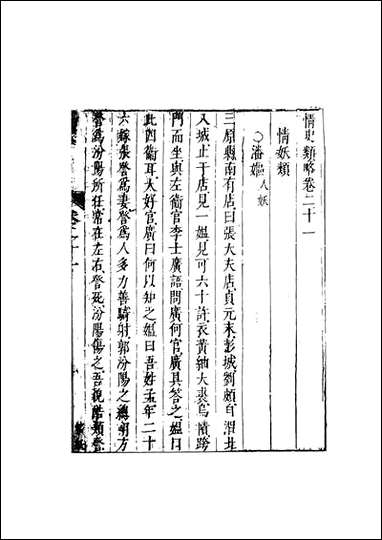 情史類略卷二十一
情妖類
○潘嫗 人妖
三原縣南有店曰張大夫店貞元末彭城劉頗自渭北
入城止于店見一媼見可六十許衣黃紬大裘烏幘跨
門而坐與左衛官李士廣語問廣何官廣具答之媼曰
此四衛耳大好官廣曰何以知之媼曰吾姓孟年二十
六嫁張詧爲妻詧爲人多力善騎射郭汾陽之總朔方
詧爲汾陽所任常在左右詧死汾陽傷之吾貌酷類詧
卷二十一